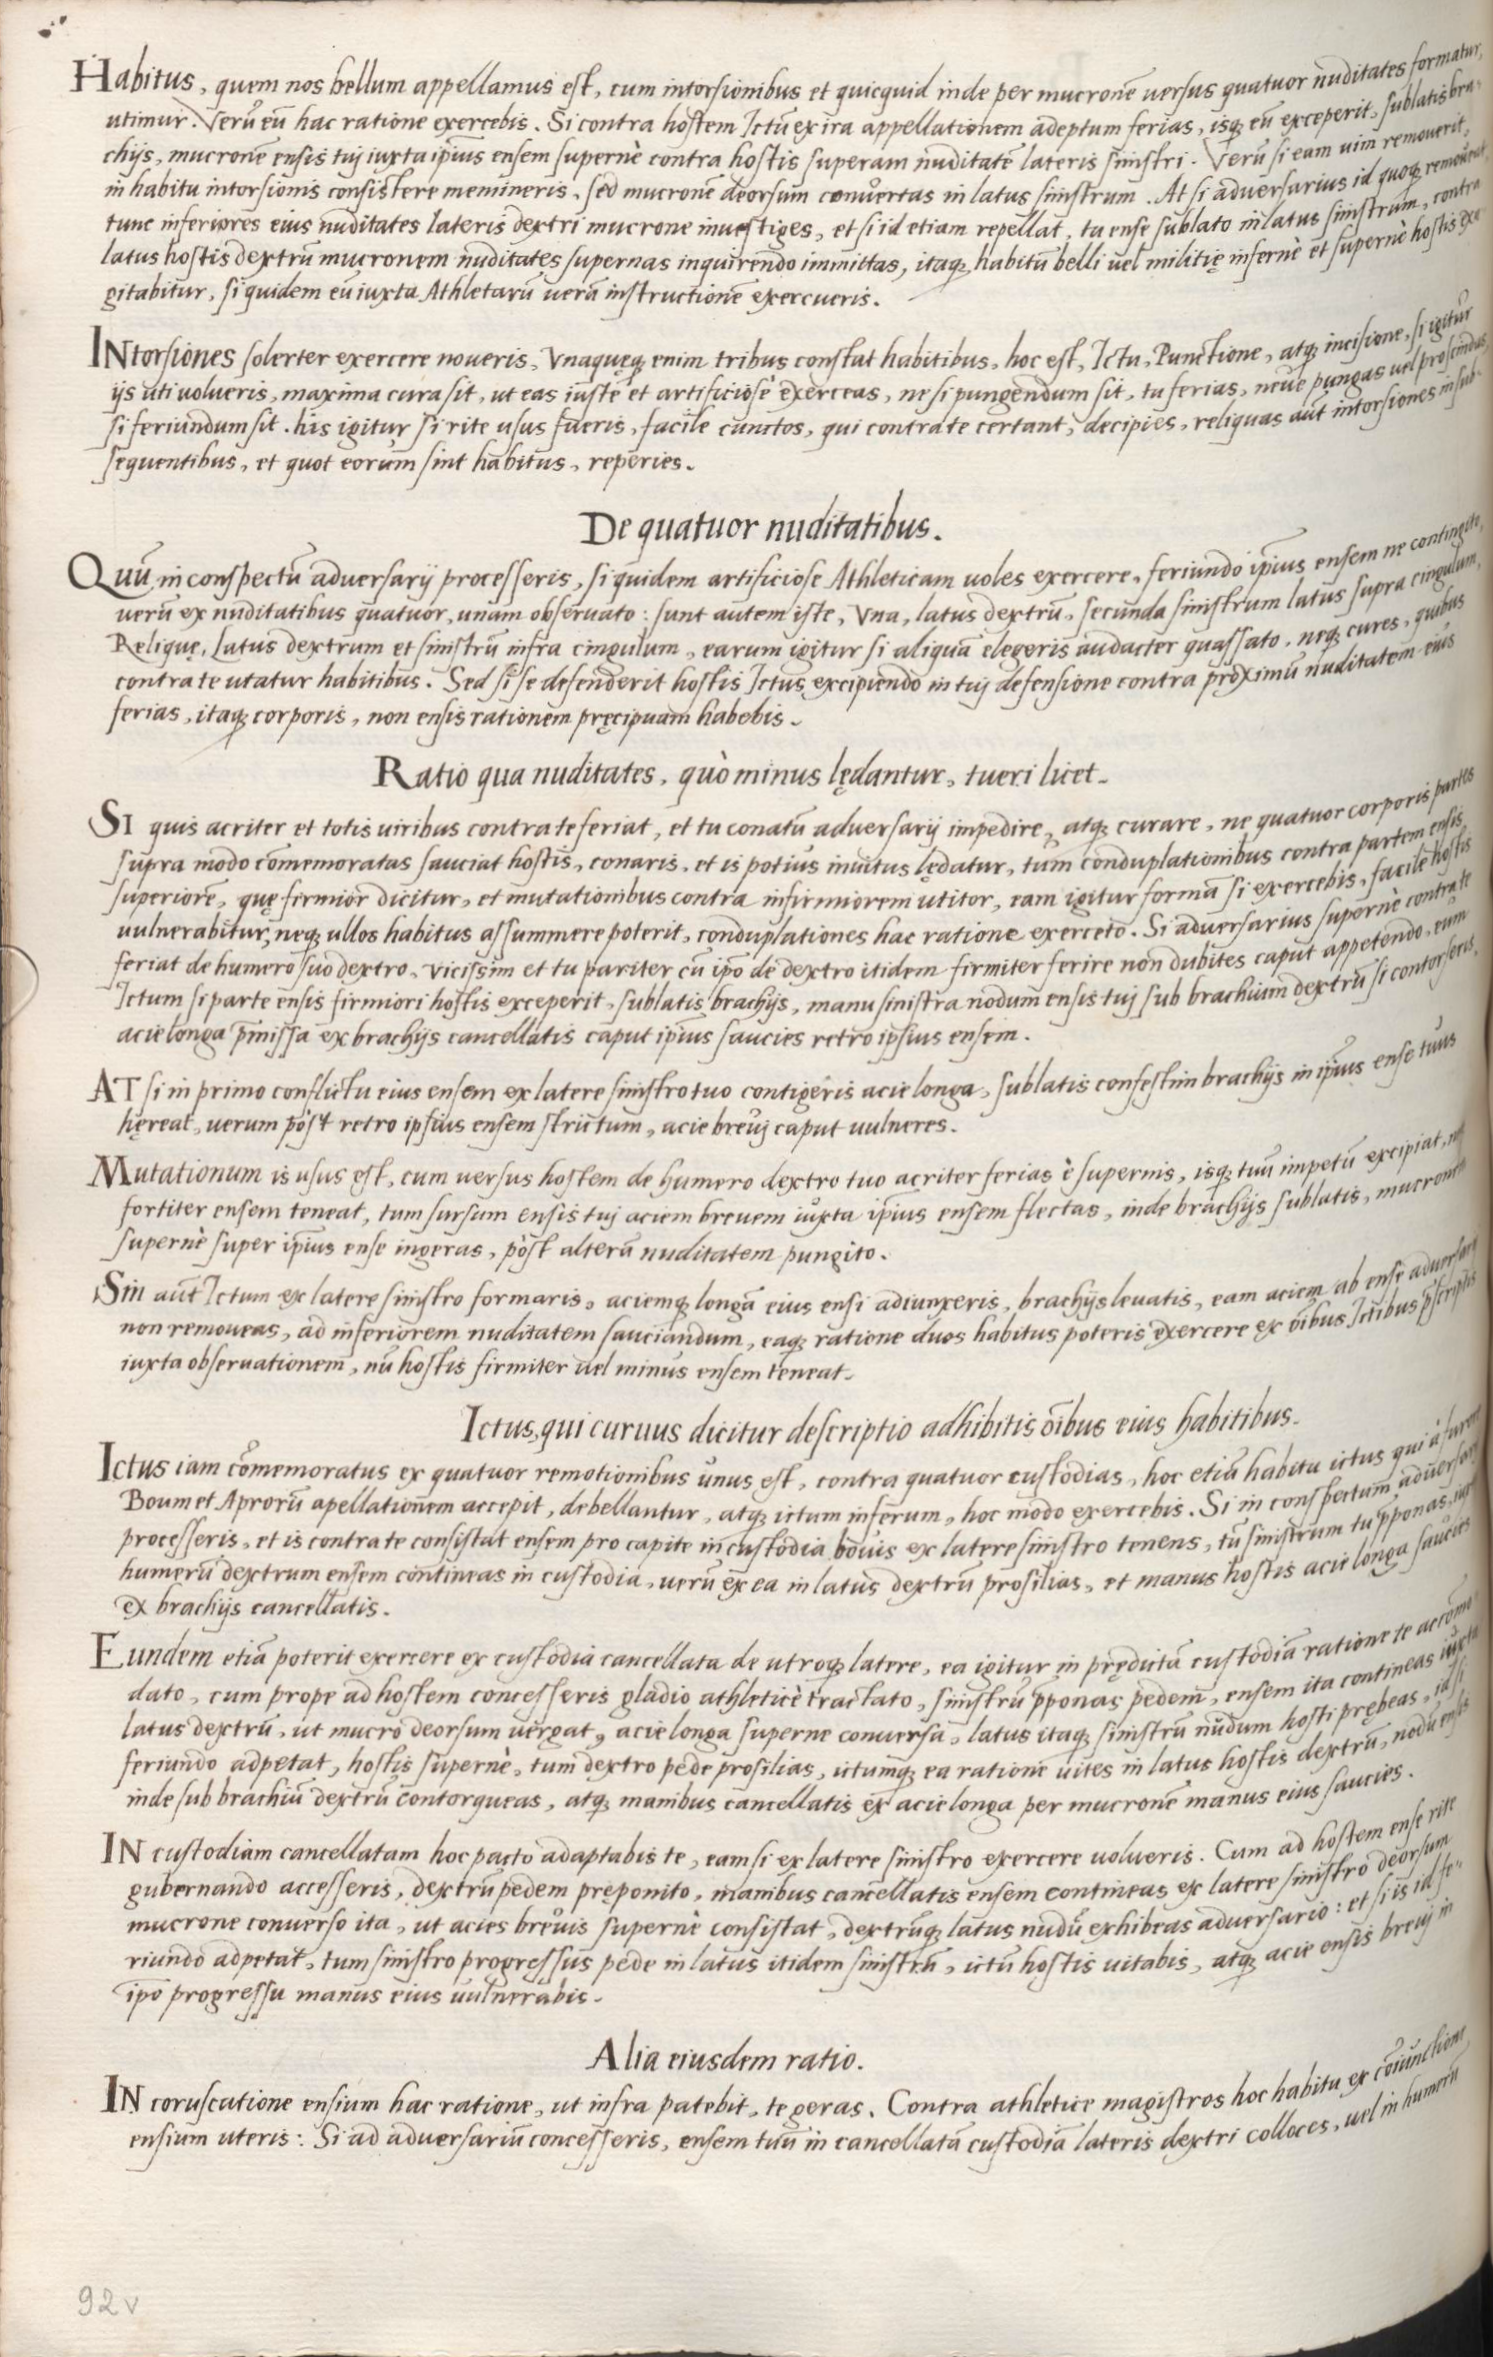 Habitus, quem nos bellum appellamus est, cum intorsionibus et quicquid inde per mucronē versus quatuor nuditates formatur,
utimur. Verū eū hac ratione exercebis. Si contra hostem Ictū ex ira appellationem adeptum ferias, isq; eū exceperit, sublatis bra-
chijs, mucronē ensis tuj iuxta ip̄ius ensem supernè contra hostis superam nuditatē lateris sinistri. Verū si eam uim remouerit,
in habitu intorsionis consistere memineris, sed mucronē deorsum convertas in latus sinistrum. At si adversarius id quoq; remoueat
tunc inferiores eius nuditates lateris dextri mucrone investiges, et si id etiam repellat, tu ense sublato in latus sinistrum, contra
latus hostis dextrū mucronem nuditates supernas inquirendo immittas, itaq; habitū belli vel militię infernè et supernè hostis exa
gitabitur, siquidem eū iuxta Athletarū verā instructionē exercueris.
INtorsiones solerter exercere noveris, Vnaquęq; enim tribus constat habitibus, hoc est, Ictu, Punctione, atq; incisione, si igitur
ijs uti volueris, maxima cura sit, ut eas iustè et artificiosè exerceas, ne si pungendum sit, tu ferias, neve pungas vel proscindas
si feriundum sit. his igitur si rite usus fueris, facile cunctos, qui contra te certant, decipies, reliquas aūt intorsiones in sub-
sequentibus, et quot eorum sint habitus, reperies.
De quatuor nuditatibus.
Quū in conspectū adversarij processeris, siquidem artificiose Athleticam voles exercere, feriundo ip̄ius ensem ne contingito,
verū ex nuditatibus quatuor, unam observato: sunt autem iste, Vna, latus dextrū, secunda sinistrum latus supra cingulum,
Reliquę, Latus dextrum et sinistrū infra cingulum, earum igitur si aliquā elegeris audacter quassato, neq; cures, quibus
contra te utatur habitibus. Sed si se defenderit hostis Ictus excipiendo in tuj defensione contra proximū nuditatem eius
ferias, itaq; corporis, non ensis rationem pręcipuam habebis.
Ratio qua nuditates, quò minus lędantur, tueri licet.
SI quis acriter et totis viribus contra te feriat, et tu conatū adversarij impedire, atq; curare, ne quatuor corporis partes
supra modo cōmemoratas sauciat hostis, conaris, et is potius invitus lędatur, tum conduplationibus contra partem ensis
superiorē, quę firmior dicitur, et mutationibus contra infirmiorem utitor, eam igitur formā si exercebis, facile hostis
vulnerabitur, neq; ullos habitus assummere poterit, conduplationes hac ratione exerceto. Si adversarius supernè contra te
feriat de humero suo dextro, vicissim et tu pariter cū ip̄o de dextro itidem firmiter ferire non dubites caput appetendo, eum
Ictum si parte ensis firmiori hostis exceperit, sublatis brachijs, manu sinistra nodum ensis tuj sub brachium dextrū si contorseris,
acie longa p̄missa ex brachijs cancellatis caput ip̄ius saucies retro ipsius ensem.
AT si in primo conflictu eius ensem ex latere sinistro tuo contigeris acie longa, sublatis confestim brachijs in ip̄ius ense tuus
hęreat, verum pòst retro ipsius ensem strictum, acie brevj caput vulneres.
Mutationum is usus est, cum versus hostem de humero dextro tuo acriter ferias è supernis, isq; tuū impetū excipiat, neq;
fortiter ensem teneat, tum sursum ensis tuj aciem brevem iuxta ip̄ius ensem flectas, inde brachijs sublatis, mucronem
supernè super ip̄ius ense ingeras, pòst alterā nuditatem pungito.
Sin aūt Ictum ex latere sinistro formaris, aciemq; longā eius ensi adiunxeris, brachijs levatis, eam aciem ab ense adversarij
non removeas, ad inferiorem nuditatem sauciandum, eaq; ratione duos habitus poteris exercere ex oībus Ictibus p̄scriptis
iuxta observationem, nū hostis firmiter vel minus ensem teneat.
Ictus, qui curvus dicitur descriptio adhibitis oībus eius habitibus.
Ictus iam cōmemoratus ex quatuor remotionibus unus est, contra quatuor custodias, hoc etiū habitu ictus qui à furore
Boum et Aprorū apellationem accepit, debellantur, atq; ictum inferum, hoc modo exercebis. Si in conspectum adversarij
processeris, et is contra te consistat ensem pro capite in custodia bovis ex latere sinistro tenens, tū sinistrum tu p̄ponas, iuxta
humerū dextrum ensem contineas in custodia, verū ex ea in latus dextrū prosilias, et manus hostis acie longa saucies
ex brachijs cancellatis.
Eundem etiā poterit exercere ex custodia cancellata de utroq; latere, ea igitur in prędictā custodiā ratione te accōmo
dato, cum prope ad hostem concesseris gladio athleticè tractato, sinistrū p̄ponas pedem, ensem ita contineas iuxta
latus dextrū, ut mucro deorsum vergat, acie longa superne conversa, latus itaq; sinistrū nudum hosti prębeas, id si
feriundo adpetat, hostis supernè, tum dextro pede prosilias, ictumq; ea ratione vites in latus hostis dextrū, nodū ensis
inde sub brachiū dextrū contorqueas, atq; manibus cancellatis ex acie longa per mucronē manus eius saucies.
IN custodiam cancellatam hoc pacto adaptabis te, eam si ex latere sinistro exercere volueris. Cum ad hostem ense rite
gubernando accesseris, dextrum pedem pręponito, manibus cancellatis ensem contineas ex latere sinistro deorsum
mucrone converso ita, ut acies brevis supernè consistat, dextrūq; latus nudū exhibeas adversario: et si is id fe-
riundo adpetat, tum sinistro progressus pede in latus itidem sinistrū, ictū hostis vitabis, atq; acie ensis brevj in
ip̄o progressu manus eius vulnerabis.
Alia eiusdem ratio.
IN coruscatione ensium hac ratione, ut infra patebit, te geras. Contra athletice magistros hoc habitu ex cōiunctione
ensium uteris: Si ad adversariū concesseris, ensem tuū in cancellatā custodiā lateris dextri colloces, vel in humerū
92v